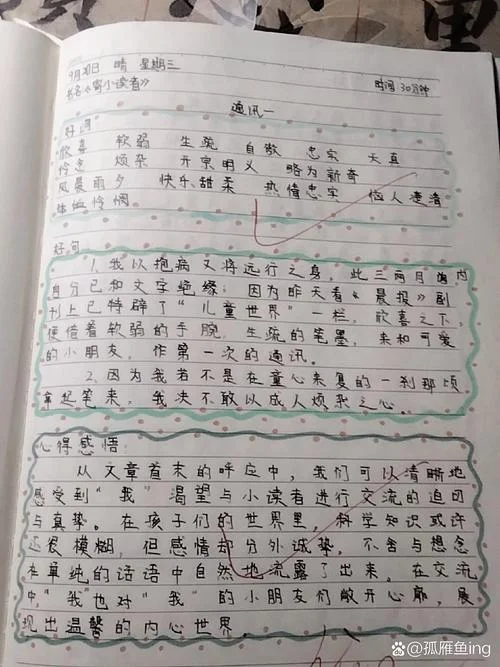 9月20日 晴 星期三
书名《寄小读者》 时间:30分钟
通讯一
好词:
欣喜 软弱 生疏 自傲 忠实 天真
怜念 烦杂 开宗明义 略为新奇
风晨雨夕 快乐甜柔 热情忠实 恼人凄清
体恤怜悯
好句:
1、我以抱病又将远行之身,此三两月内
自分已和文字绝缘;因为昨天看《晨报》副
刊上已特辟了“儿童世界”一栏,欣喜之下,
便借着软弱的手腕,生疏的笔墨,来和可爱
的小朋友,作第一次的通讯。
2、因为我若不是在童心来复的一刹那顷
拿起笔来,我决不敢以成人烦杂之心。
心得感悟:
从文章首末的呼应中,我们可以清晰地
感受到“我”渴望与小读者进行交流的迫切
与真挚。在孩子们的世界里,科学知识或许
还很模糊,但感情却分外诚挚,不舍与想念
在单纯的话语中自然地流露了出来。在交流
中,“我”也对“我”的小朋友们敞开心扉,展
现出温馨的内心世界。
@孤雁鱼ing